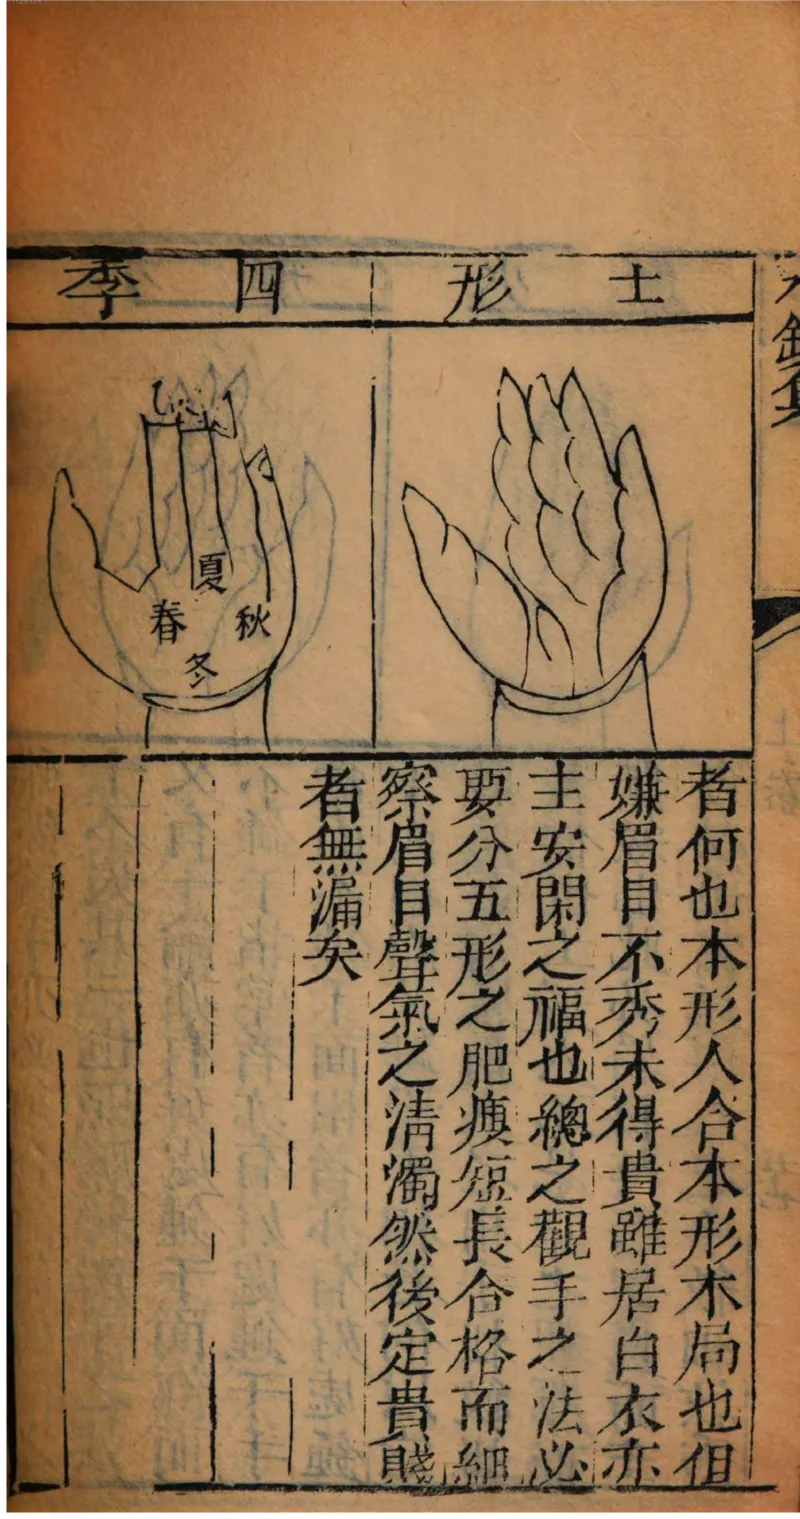 土形
四季
夏
春
秋
冬
者何也本形人合本形木局也但
嫌眉目不秀未得貴雖居白衣亦
主安閑之福也總之觀手之法必
要分五形之肥瘦短長合格而細
察眉目聲氣之清濁然後定貴賤
者無漏矣